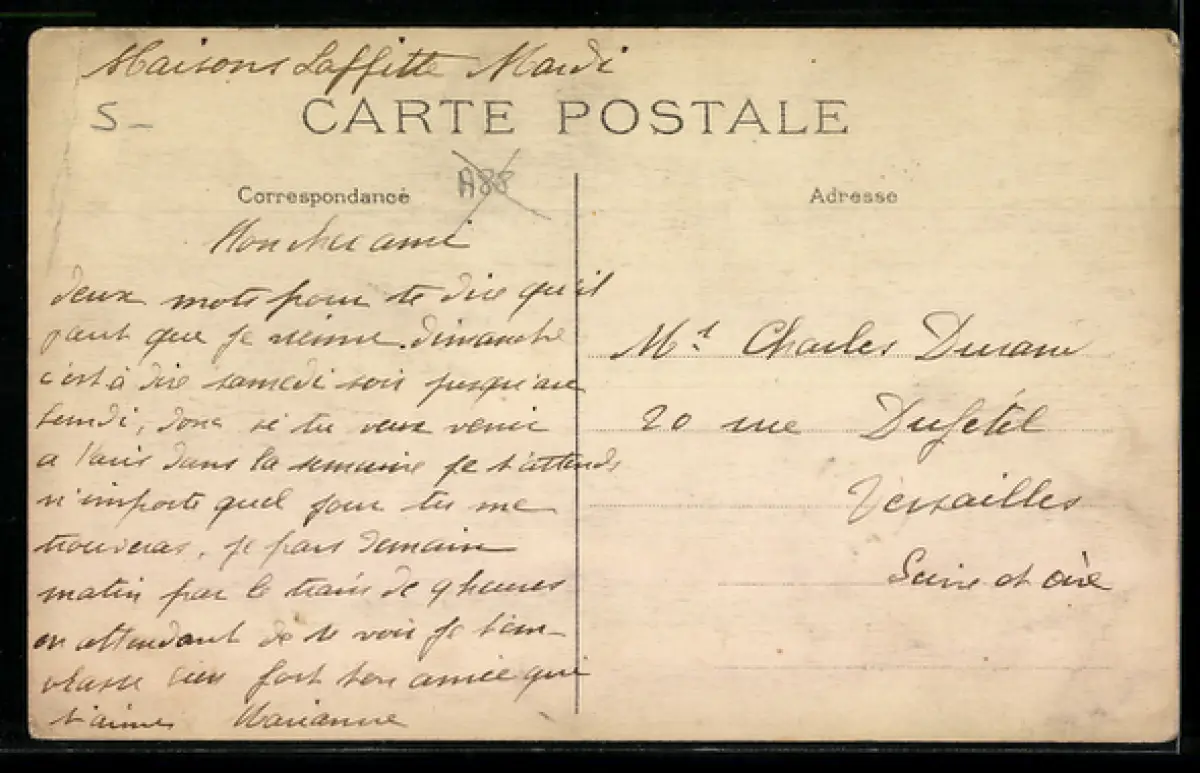 Maisons Laffitte Mardi
5 –
CARTE POSTALE
Correspondance
A88
Adresse
Mon cher ami
deux mots pour te dire qu'il
faut que je vienne dimanche
c'est à dire samedi soir jusqu'au
lundi, donc si tu veux venir
a Paris dans la semaine je t'attends
n'importe quel jour tu me
trouveras, je pars demain
matin par le train de 9 heures
en attendant de te voir je t'em-
brasse bien fort ton amie qui
t'aime Marianne
Mr. Charles Durand
20 rue
Versailles
Seine et oise